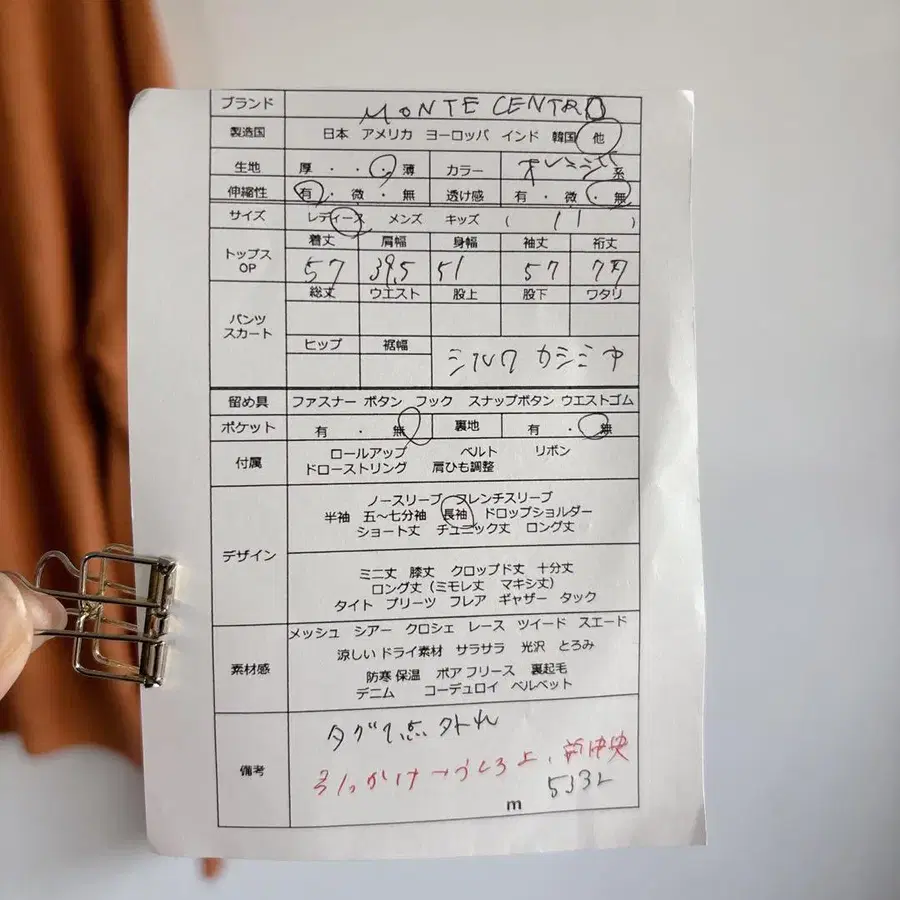 ブランド MONTE CENTRO
製造国 日本 アメリカ ヨーロッパ インド 韓国 他
生地 厚・・・薄 カラー オレンジ 系
伸縮性 有・微・無 透け感 有・微・無
サイズ レディース メンズ キッズ ( 11 )
トップス OP 着丈 肩幅 身幅 袖丈 裄丈
57 39.5 51 57 77
パンツ スカート 総丈 ウエスト 股上 股下 ワタリ
ヒップ 裾幅
シルク カシミヤ
留め具 ファスナー ボタン フック スナップボタン ウエストゴム
ポケット 有・無 裏地 有・無
付属 ロールアップ ベルト リボン
ドローストリング 肩ひも調整
デザイン ノースリーブ フレンチスリーブ
半袖 五〜七分袖 長袖 ドロップショルダー
ショート丈 チュニック丈 ロング丈
ミニ丈 膝丈 クロップド丈 十分丈
ロング丈(ミモレ丈 マキシ丈)
タイト プリーツ フレア ギャザー タック
素材感 メッシュ シアー クロシェ レース ツイード スエード
涼しい ドライ素材 サラサラ 光沢 とろみ
防寒 保温 ボア フリース 裏起毛
デニム コーデュロイ ベルベット
備考 タグ1点外れ
引っかけ→うしろ上、前中央
m